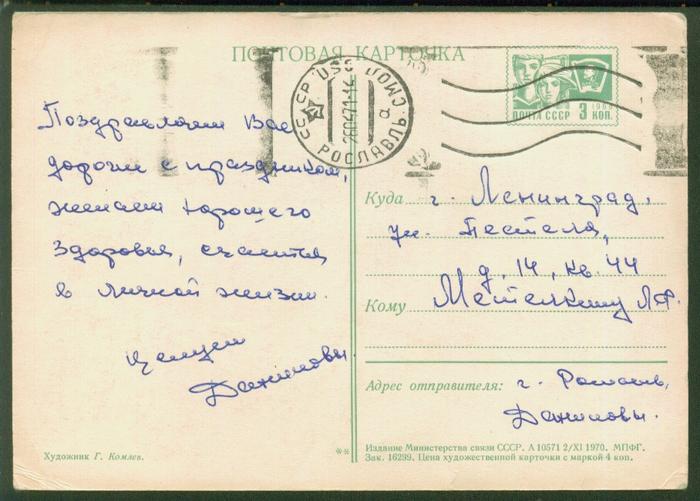 ПОЧТОВАЯ КАРТОЧКА
СССР USSR
РОСЛАВЛЬ СМОЛ.
ПОЧТА СССР 3 КОП.
1966
Поздравляем Вас
дорогие с праздником,
желаем хорошего
здоровья, счастья
в личной жизни.
Целуем
Даниловы.
Куда г. Ленинград,
ул. Пестеля,
д. 14, кв. 44
Кому Метелкину Л.Ф.
Адрес отправителя: г.
Даниловы.
Художник Г. Комлев.
**
Издание Министерства связи СССР. А 10571 2/XI 1970. МПФГ.
Зак. 16299. Цена художественной карточки с маркой 4 коп.